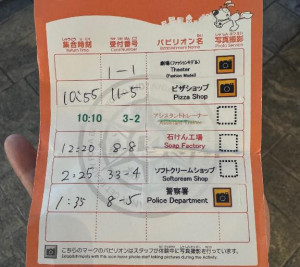 集合時間 受付番号 パビリオン名 写真撮影
Return Time Card Number Establishment Name Photo Service
1-1 劇場(ファッションモデル)
Theater
(Fashion Model)
10:55 11-5 ピザショップ
Pizza Shop
10:10 3-2 アシスタントトレーナー
12:20 8-8 石けん工場
Soap Factory
2:25 33-4 ソフトクリームショップ
Softcream Shop
1:35 8-5 警察署
Police Department
こちらのマークのパビリオンはスタッフが体験中に写真撮影を行っています。
Establishments with this icon have photo staff taking pictures during the activity.